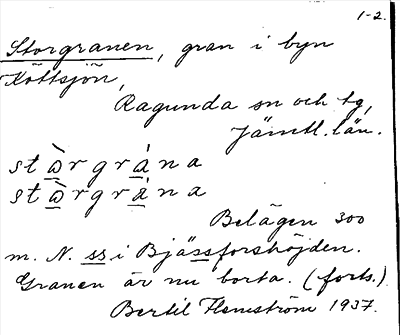 1-2.
Storgranen, gran i byn
Köttsjön,
Ragunda sn och tg,
Jämtl. län.
st ὰ r g r á n a
st ὰ r g r á n a
Belägen 300
m. N. ss i Bjässforshöjden.
Granen är nu borta. (forts.)
Bertil Flemström 1937.